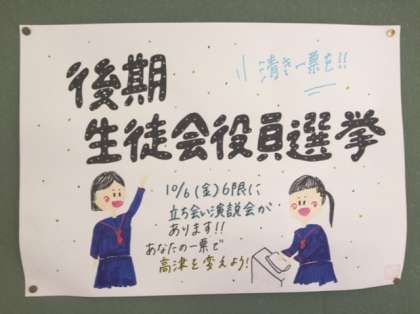 後期
清き一票を!!
生徒会役員選挙
10/6(金)6限に
立ち会い演説会が
あります!!
あなたの一票で
高津を変えよう!